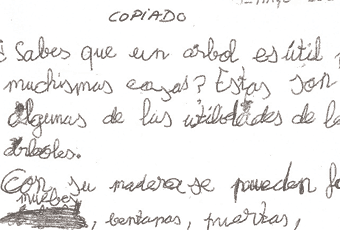 COPIADO
¿Sabes que un arbol es útil
muchismas cosas? Estas son
algunas de las utilidades de la
árboles.
Con su madera se pueden fa
muebles
, bentanas, puertas,